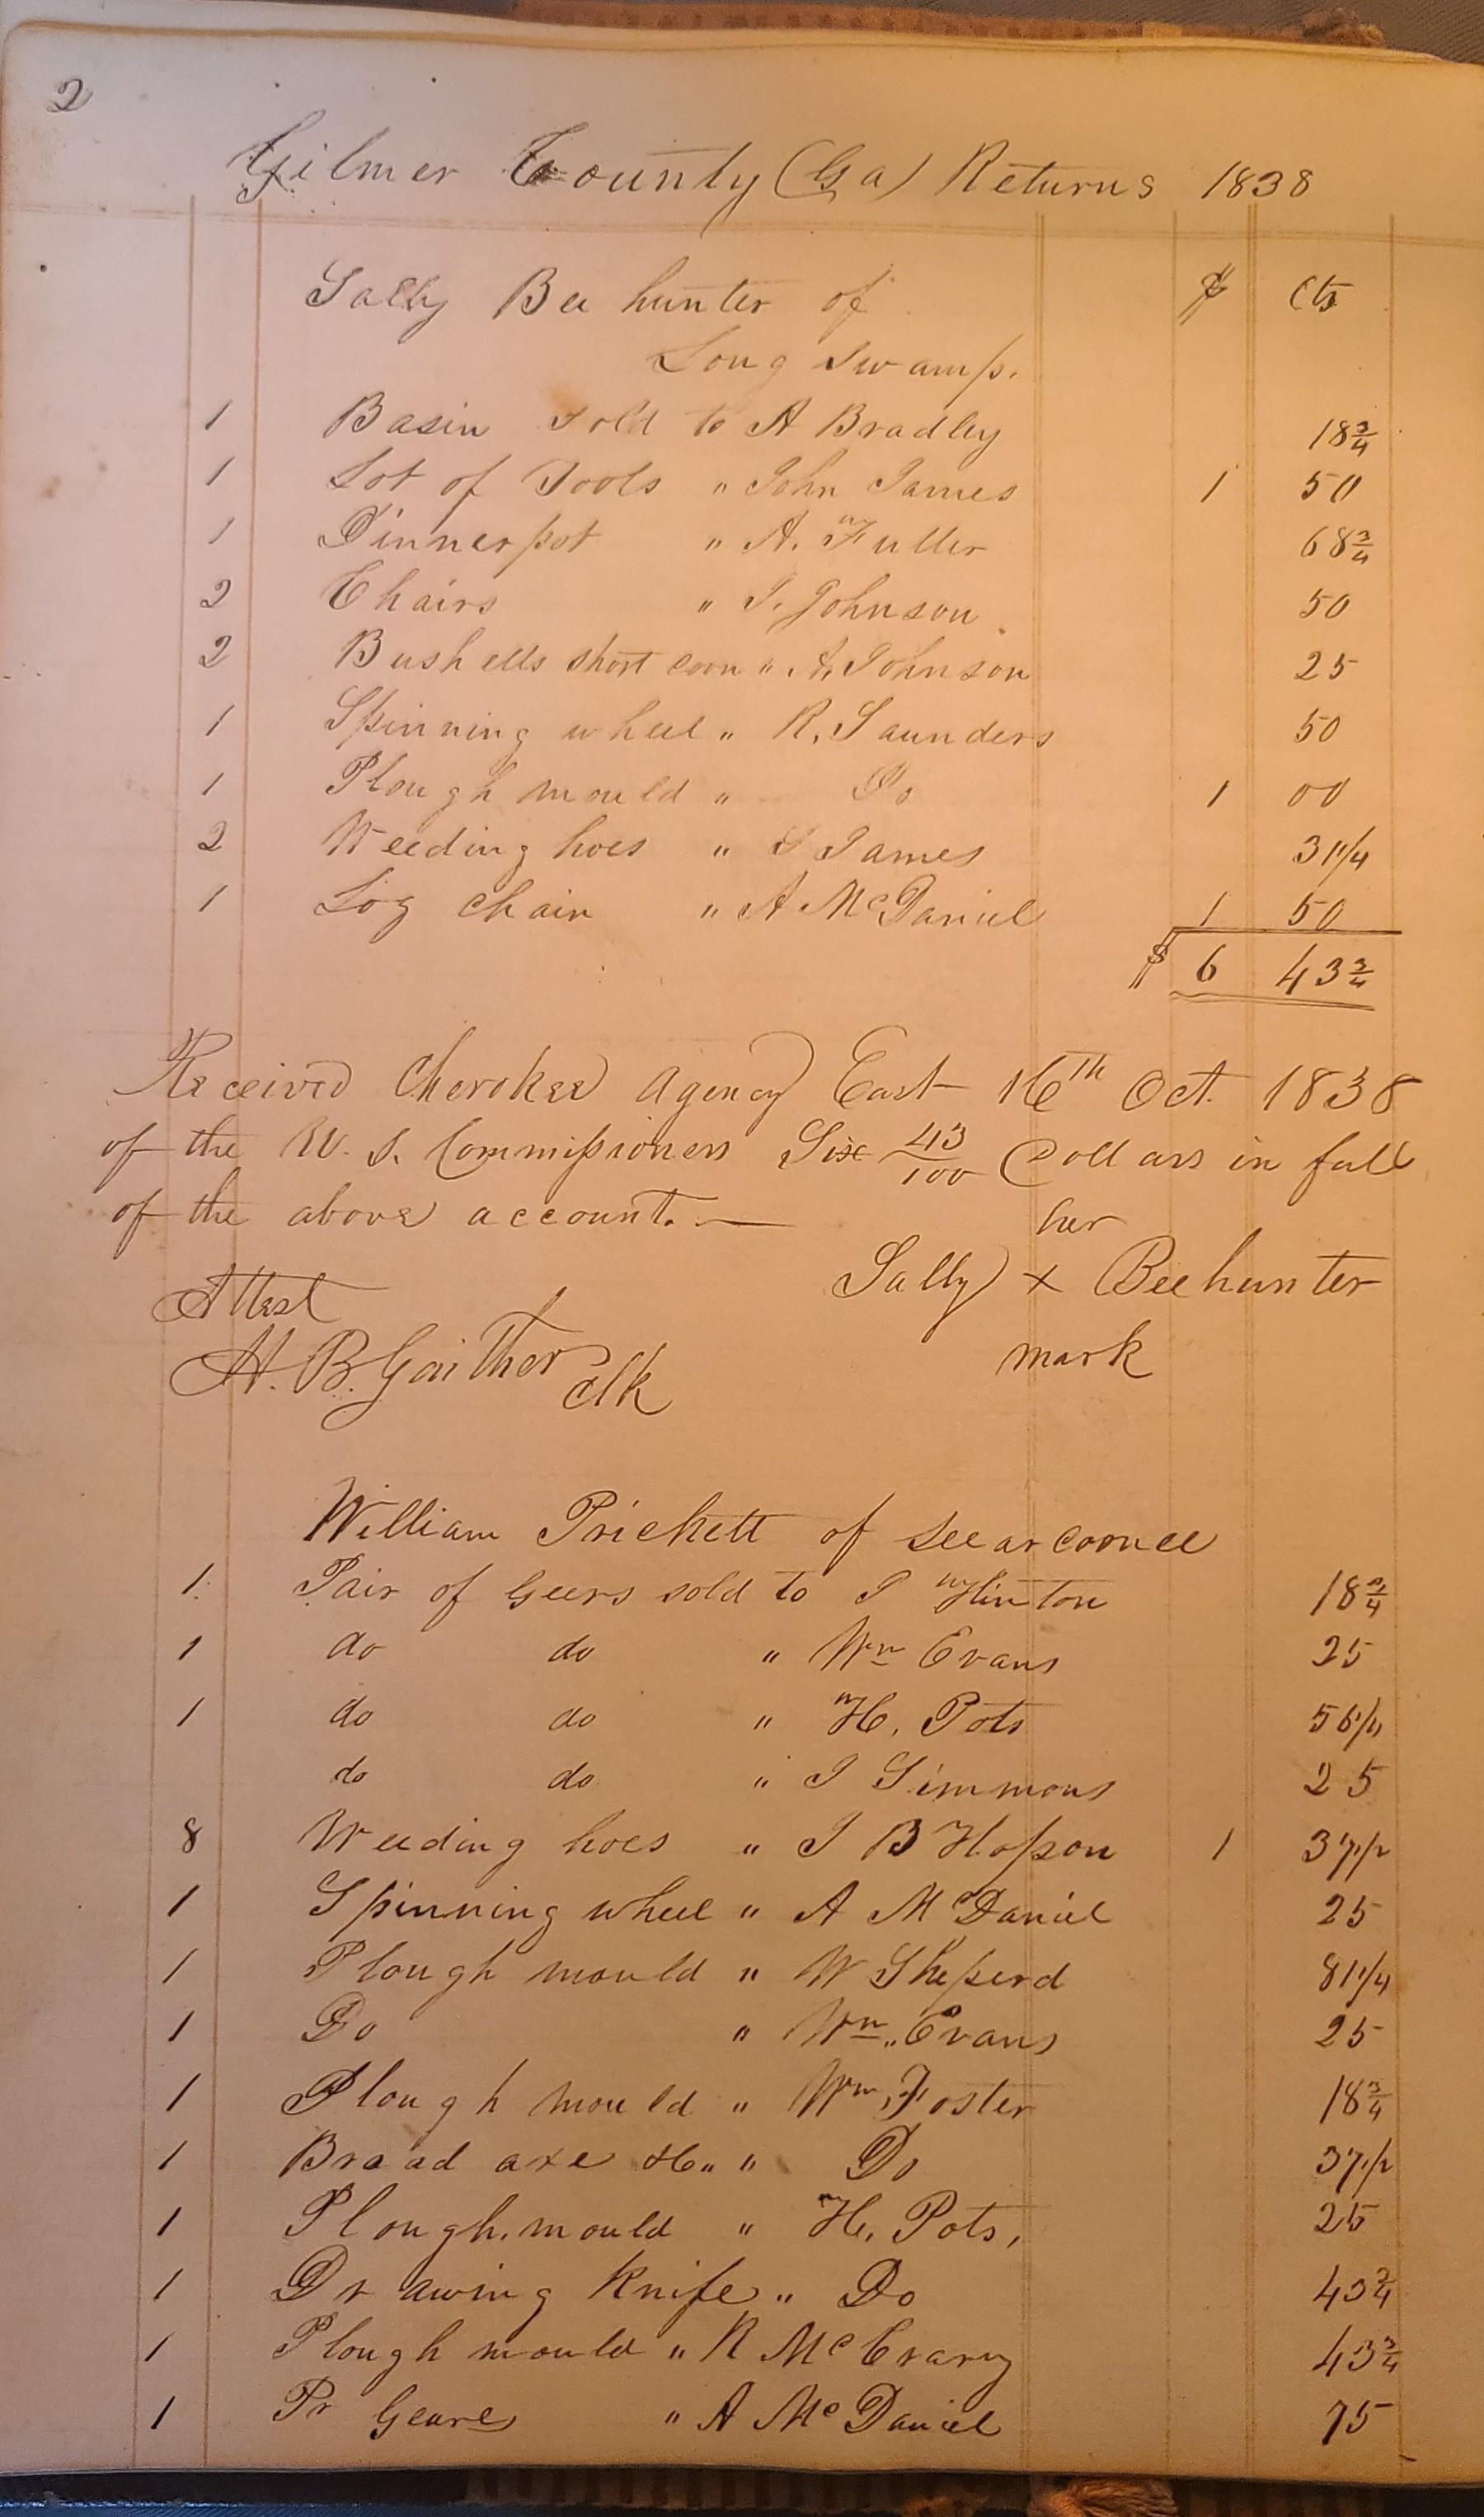 2
Gilmer County (Ga) Returns 1838
Sally Bee hunter of $ Cts
Long Swamp.
1 Basin sold to A Bradley 18 3/4
1 Lot of Tools " John James 1 50
1 Dinner pot " A. Fuller 68 3/4
2 Chairs " J. Johnson 50
2 Bushells short corn " A. Johnson 25
1 Spinning wheel " R. Saunders 50
1 Plough mould " Do 1 00
2 Weeding hoes " J James 31 1/4
1 Log chain " A McDaniel 1 50
$ 6 43 3/4
Received Cherokee Agency East 16th Oct. 1838
of the U. S. Commissioners Six 43/100 Dollars in full
of the above account. —
her
Sally x Beehunter
mark
Attest
H. B. Gaither clk
William Prickett of
1 Pair of Geers sold to J Hinton 18 3/4
1 do do " Wm Evans 25
1 do do " H. Pots 56 1/4
do do " J Simmons 25
8 Weeding hoes " J B Hopson 1 37 1/2
1 Spinning wheel " A McDaniel 25
1 Plough mould " W Sheperd 81 1/4
1 Do " Wm Evans 25
1 Plough mould " Wm Foster 18 3/4
1 Broad axe &c " " Do 37 1/2
1 Plough mould " H. Pots, 25
1 Drawing Knife " Do 43 3/4
1 Plough mould " R McCrary 43 3/4
1 Pr Geares " A McDaniel 75